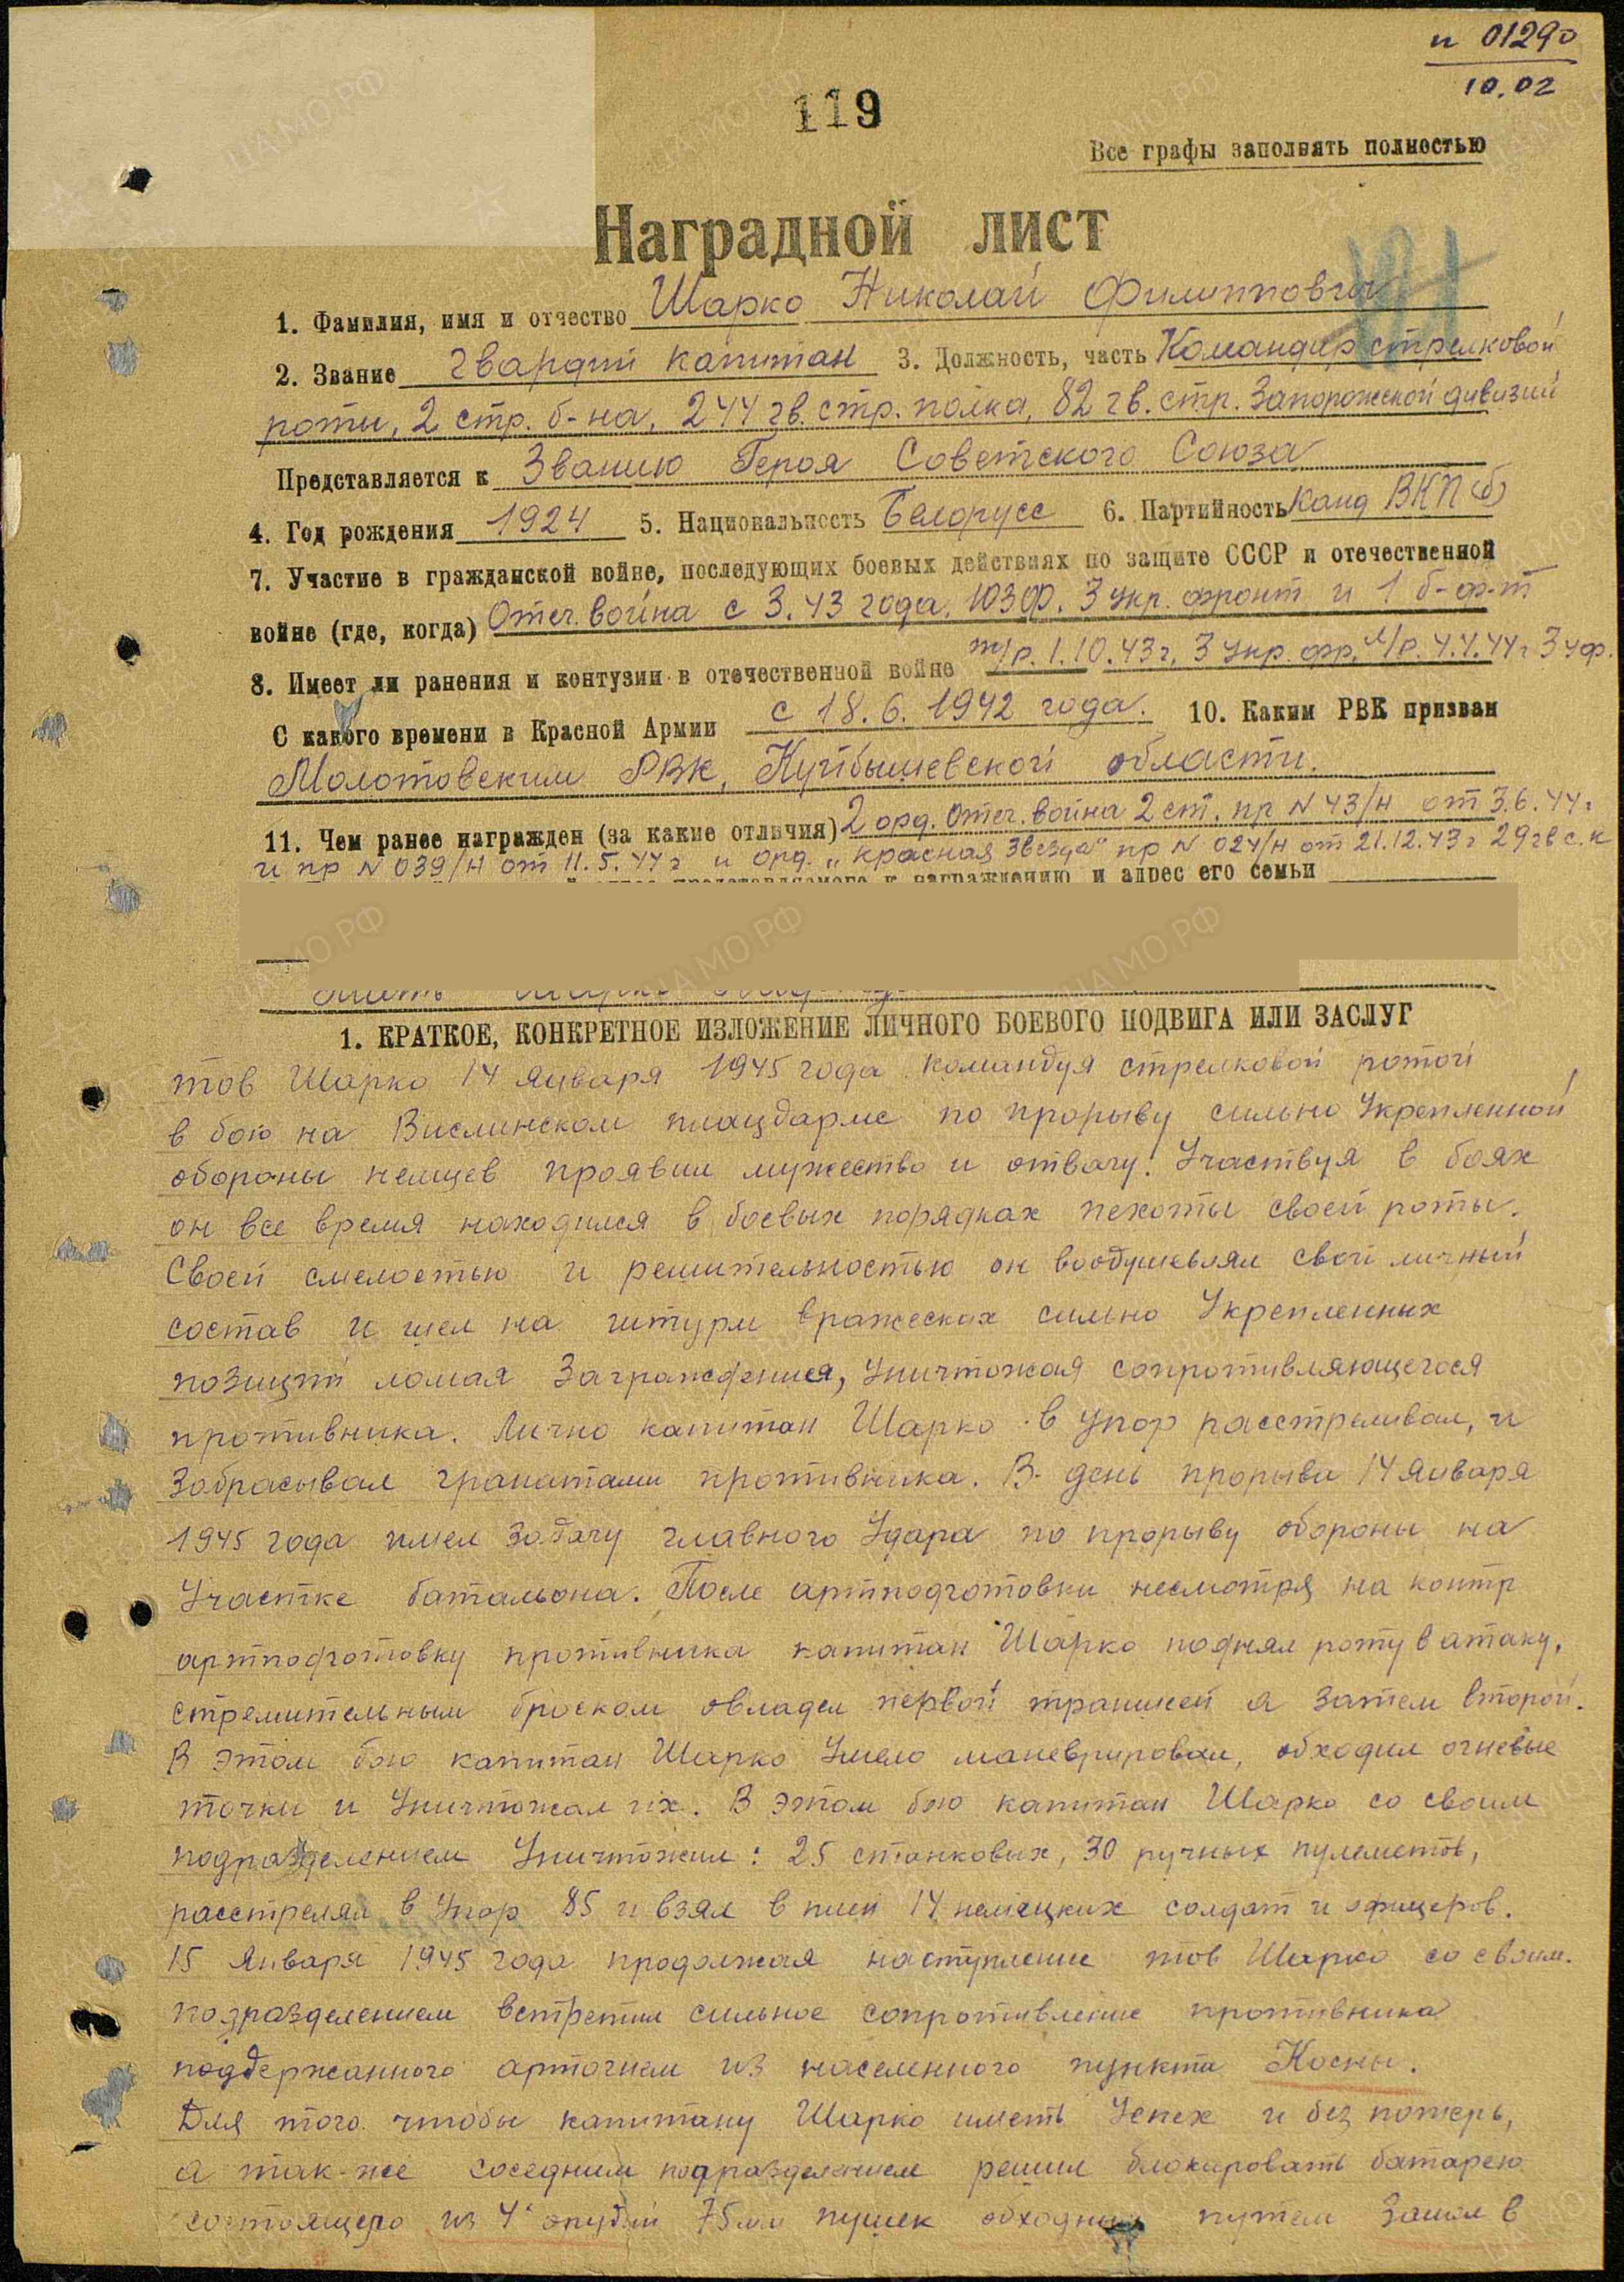 п 01290
10.02
119
Все графы заполнять полностью
Наградной лист
1. Фамилия, имя и отчество Шарко Николай Филиппович
2. Звание гвардии капитан 3. Должность, часть Командир стрелковой
роты, 2 стр. б-на, 244 гв. стр. полка, 82 гв. стр. Запорожской дивизии
Представляется к Званию Героя Советского Союза
4. Год рождения 1924 5. Национальность Белорусс 6. Партийность Канд ВКП(б)
7. Участие в гражданской войне, последующих боевых действиях по защите СССР и отечественной
войне (где, когда) Отеч. война с 3.43 года, ЮЗФ. 3 укр. фронт и 1 б-ф-т
8. Имеет ли ранения и контузии в отечественной войне т/р. 1.10.43г, 3 укр. фр, л/р. 4.4.44г 3 уф.
С какого времени в Красной Армии с 18.6.1942 года. 10. Каким РВК призван
Молотовским РВК, Куйбышевской области.
11. Чем ранее награжден (за какие отличия) 2 орд. Отеч. война 2 ст. пр N 43/н от 3.6.44г
и пр N 039/н от 11.5.44г и орд. „Красная Звезда" пр N 024/н от 21.12.43г 29 гв с.к
представляемого к награждению и адрес его семьи
1. КРАТКОЕ, КОНКРЕТНОЕ ИЗЛОЖЕНИЕ ЛИЧНОГО БОЕВОГО ПОДВИГА ИЛИ ЗАСЛУГ
тов Шарко 14 января 1945 года командуя стрелковой ротой
в бою на Вислинском плацдарме по прорыву сильно Укрепленной
обороны немцев проявил мужество и отвагу. Участвуя в боях
он все время находился в боевых порядках пехоты своей роты.
Своей смелостью и решительностью он воодушевлял свой личный
состав и шел на штурм вражеских сильно Укрепленных
позиций ломая Заграждения, Уничтожая сопротивляющегося
противника. Лично капитан Шарко в упор расстреливал, и
Забрасывал гранатами противника. В день прорыва 14 Января
1945 года имел Задачу главного Удара по прорыву обороны на
Участке батальона. После артподготовки несмотря на контр
артподготовку противника капитан Шарко поднял роту в атаку,
стремительным броском овладел первой траншеей а затем второй.
В этом бою капитан Шарко Умело маневрировал, обходил огневые
точки и Уничтожал их. В этом бою капитан Шарко со своим
подразделением Уничтожил: 25 станковых, 30 ручных пулеметов,
расстрелял в Упор 85 и взял в плен 14 немецких солдат и офицеров.
15 Января 1945 года продолжая наступление тов Шарко со своим.
подразделением встретил сильное сопротивление противника
поддержанного артогнем из населенного пункта Косны.
Для того чтобы капитану Шарко иметь Успех и без потерь,
а так-же соседним подразделением решил блокировать батарею
состоящего из 4 орудий 75мм пушек обходным путем Зашел в